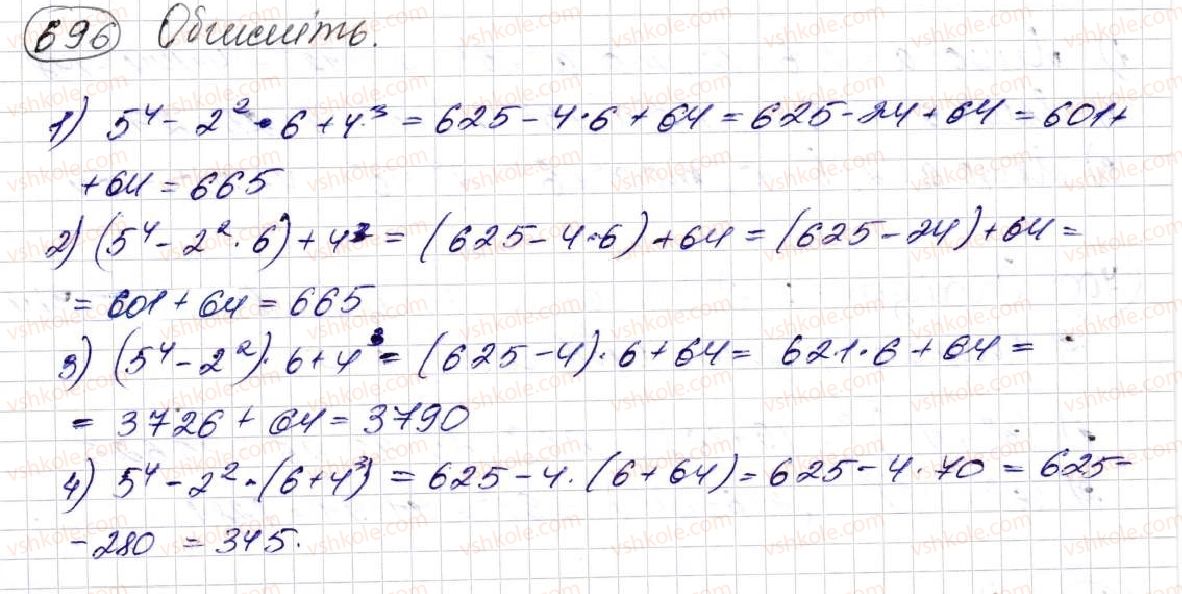 696 Обчисліть.
1) 5⁴ - 2² · 6 + 4³ = 625 - 4 · 6 + 64 = 625 - 24 + 64 = 601 +
+ 64 = 665
2) (5⁴ - 2² · 6) + 4³ = (625 - 4 · 6) + 64 = (625 - 24) + 64 =
= 601 + 64 = 665
3) (5⁴ - 2²) · 6 + 4³ = (625 - 4) · 6 + 64 = 621 · 6 + 64 =
= 3726 + 64 = 3790
4) 5⁴ - 2² · (6 + 4³) = 625 - 4 · (6 + 64) = 625 - 4 · 70 = 625 -
- 280 = 345.
vshkole.com